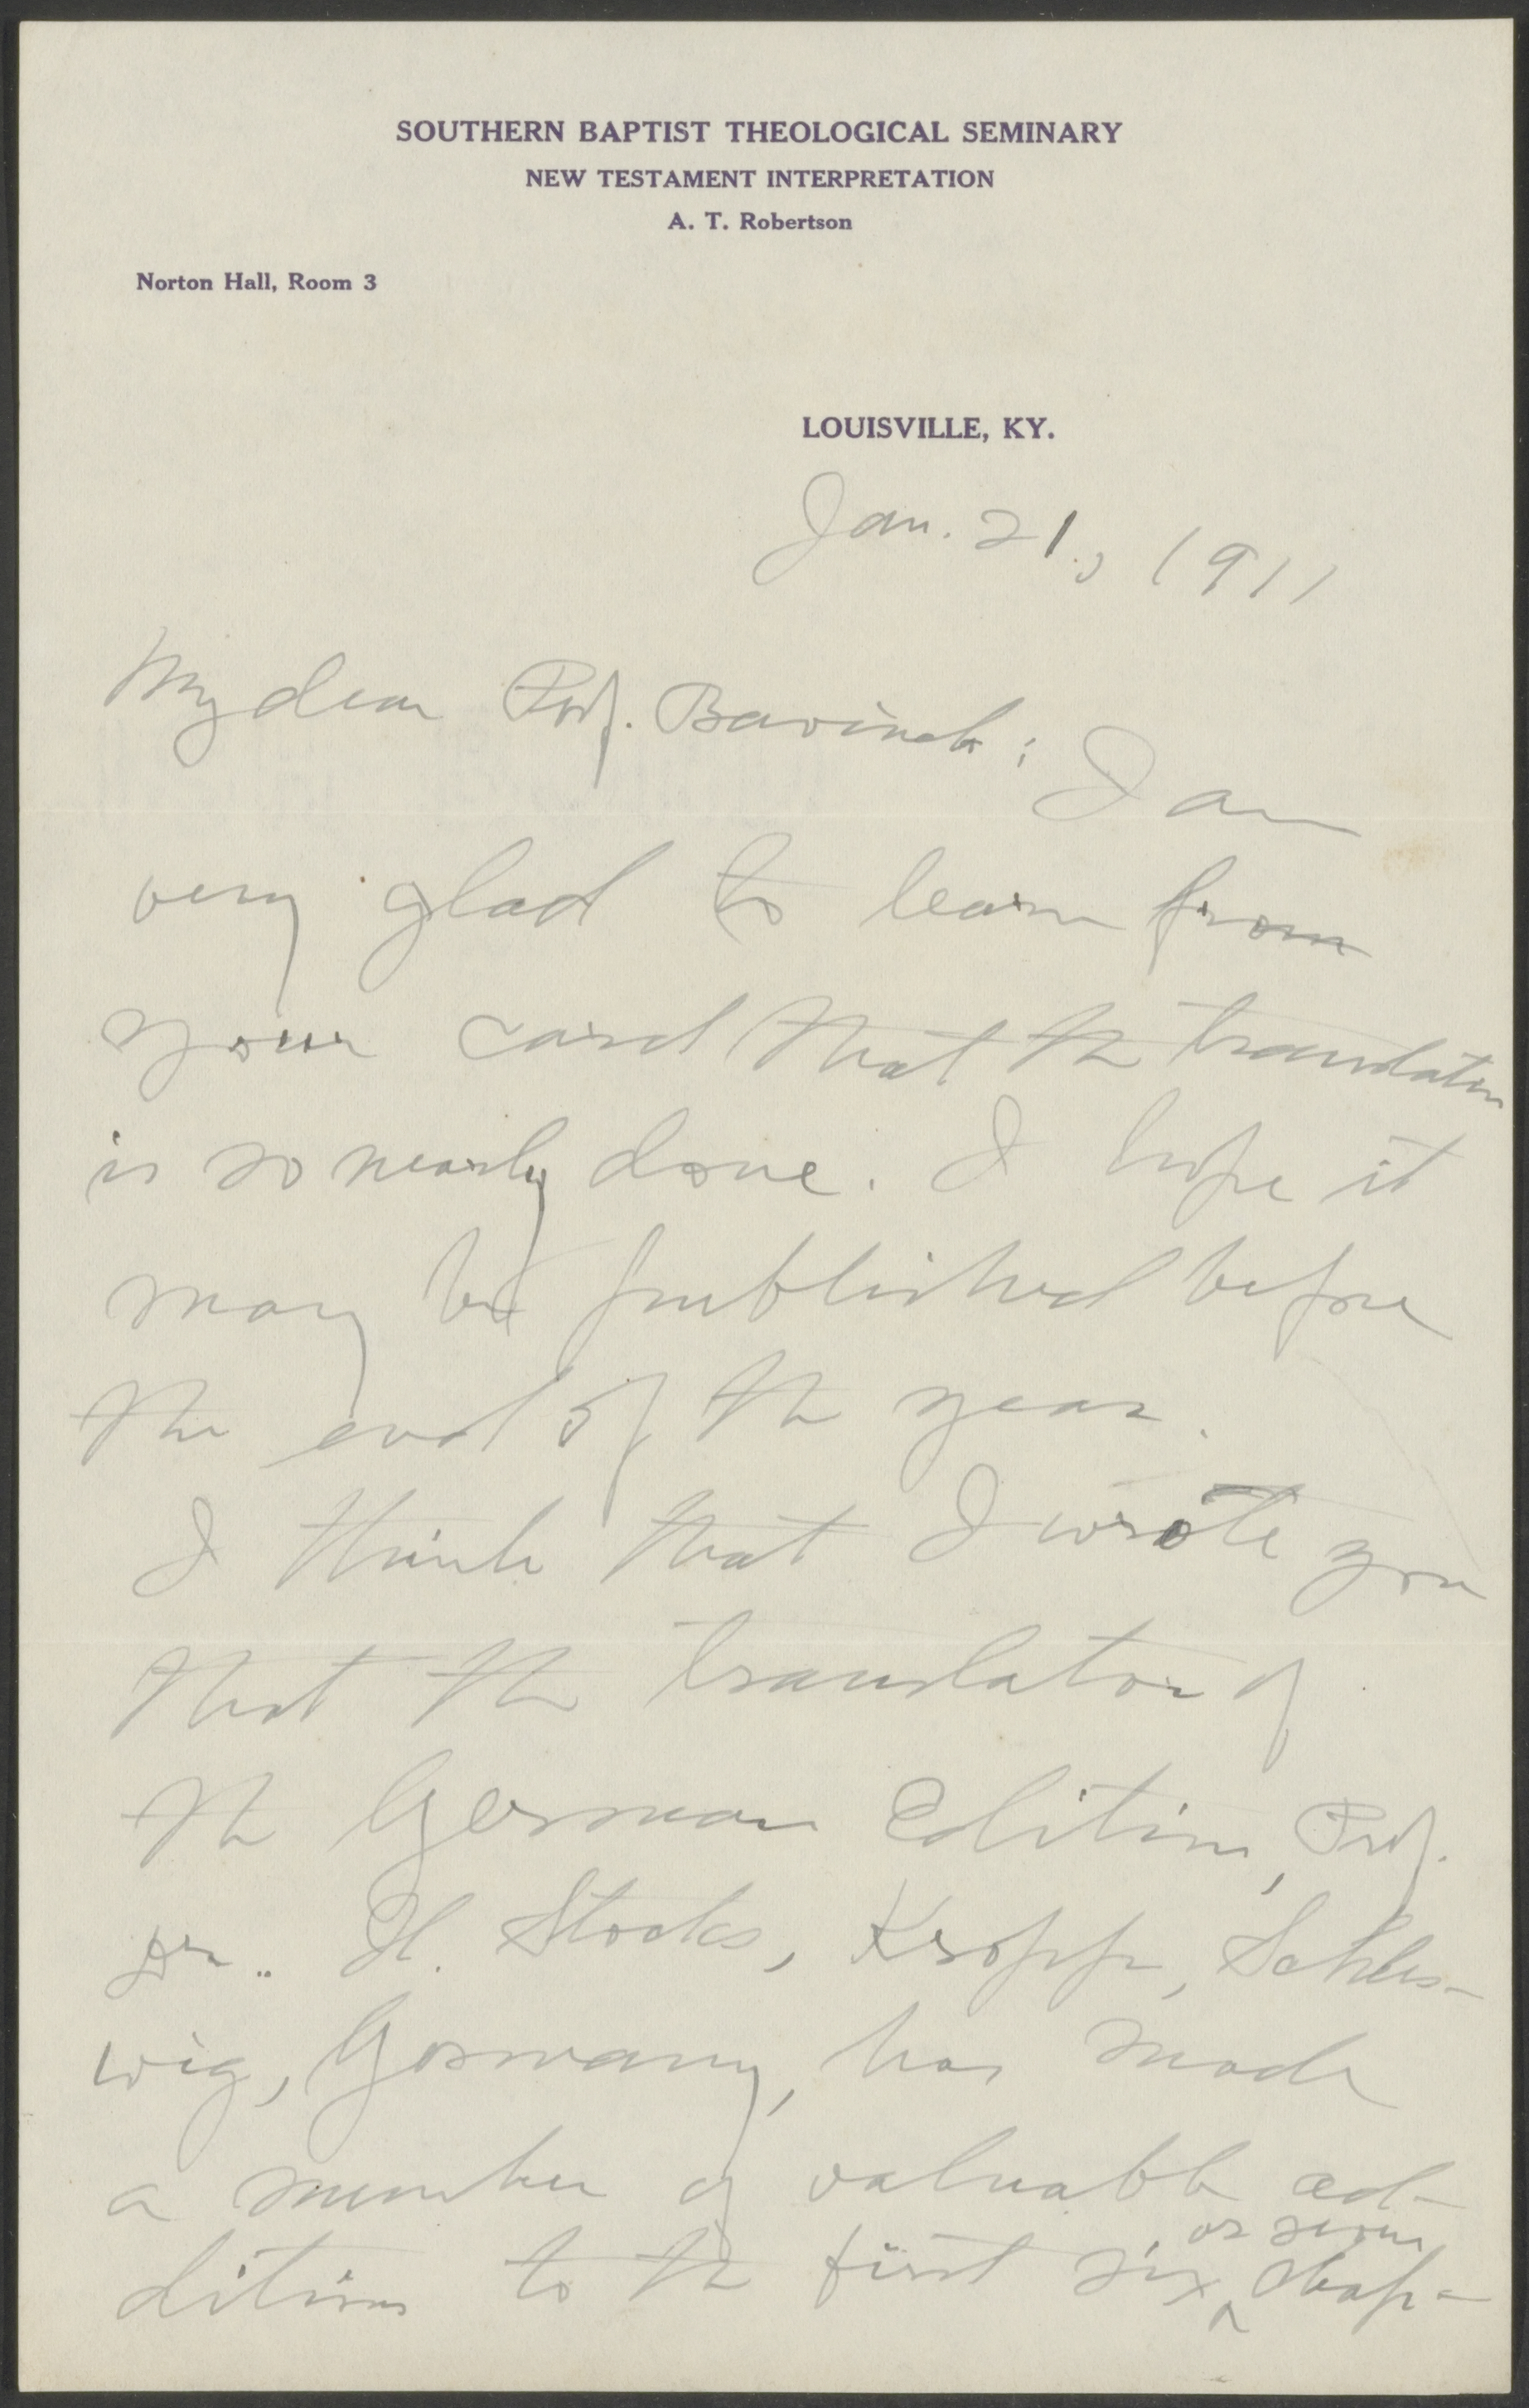 SOUTHERN BAPTIST THEOLOGICAL SEMINARY
NEW TESTAMENT INTERPRETATION
A. T. Robertson
Norton Hall, Room 3
LOUISVILLE, KY.
Jan. 21., 1911
My dear Prof. Bavinck: I am
very glad to learn from
your card that the translation
is so nearly done. I hope it
may be published before
the end of the year.
I think that I wrote you
that the translator of
the German Edition, Prof.
Dr. H. Stocks, Kropp, Schles-
wig, Germany, has made
a number of valuable ad-
or seven
ditions to the first six ^ chap-